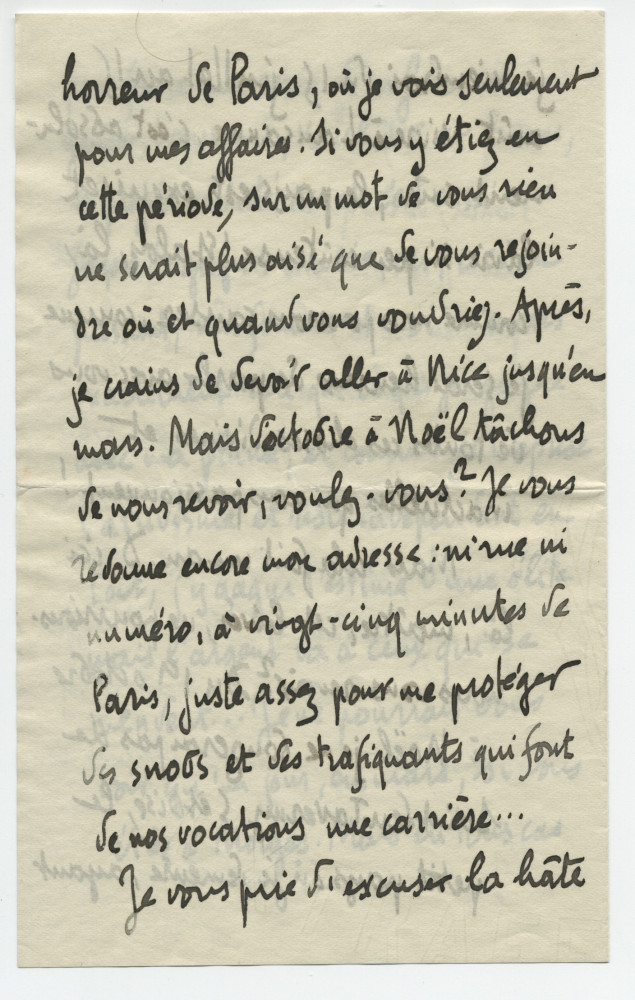 horreur de Paris, où je vais seulement
pour mes affaires. Si vous y étiez en
cette période, sur un mot de vous rien
ne serait plus aisé que de vous rejoin-
dre où et quand vous voudriez. Après,
je crains de devoir aller à Nice jusqu'en
mars. Mais d'octobre à Noël tâchons
de nous revoir, voulez-vous? Je vous
redonne encore mon adresse : ni rue ni
numéro, à vingt-cinq minutes de
Paris, juste assez pour me protéger
des snobs et des trafiquants qui font
de nos vocations une carrière...
Je vous prie d'excuser la hâte